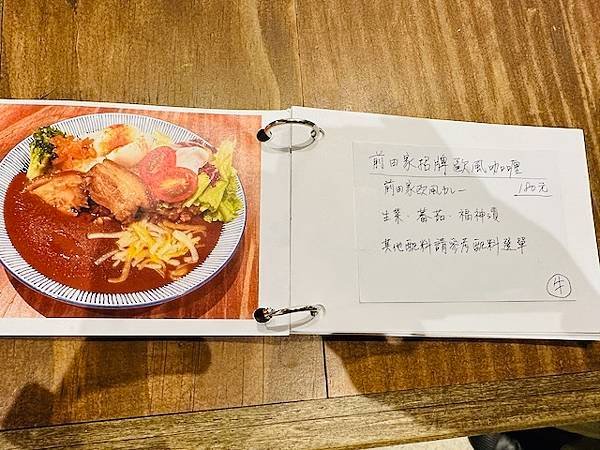 前田家招牌歐風咖哩
前田家欧風カレー 180元
生菜、蕃茄、福神漬
其他配料請參考配料菜單
牛